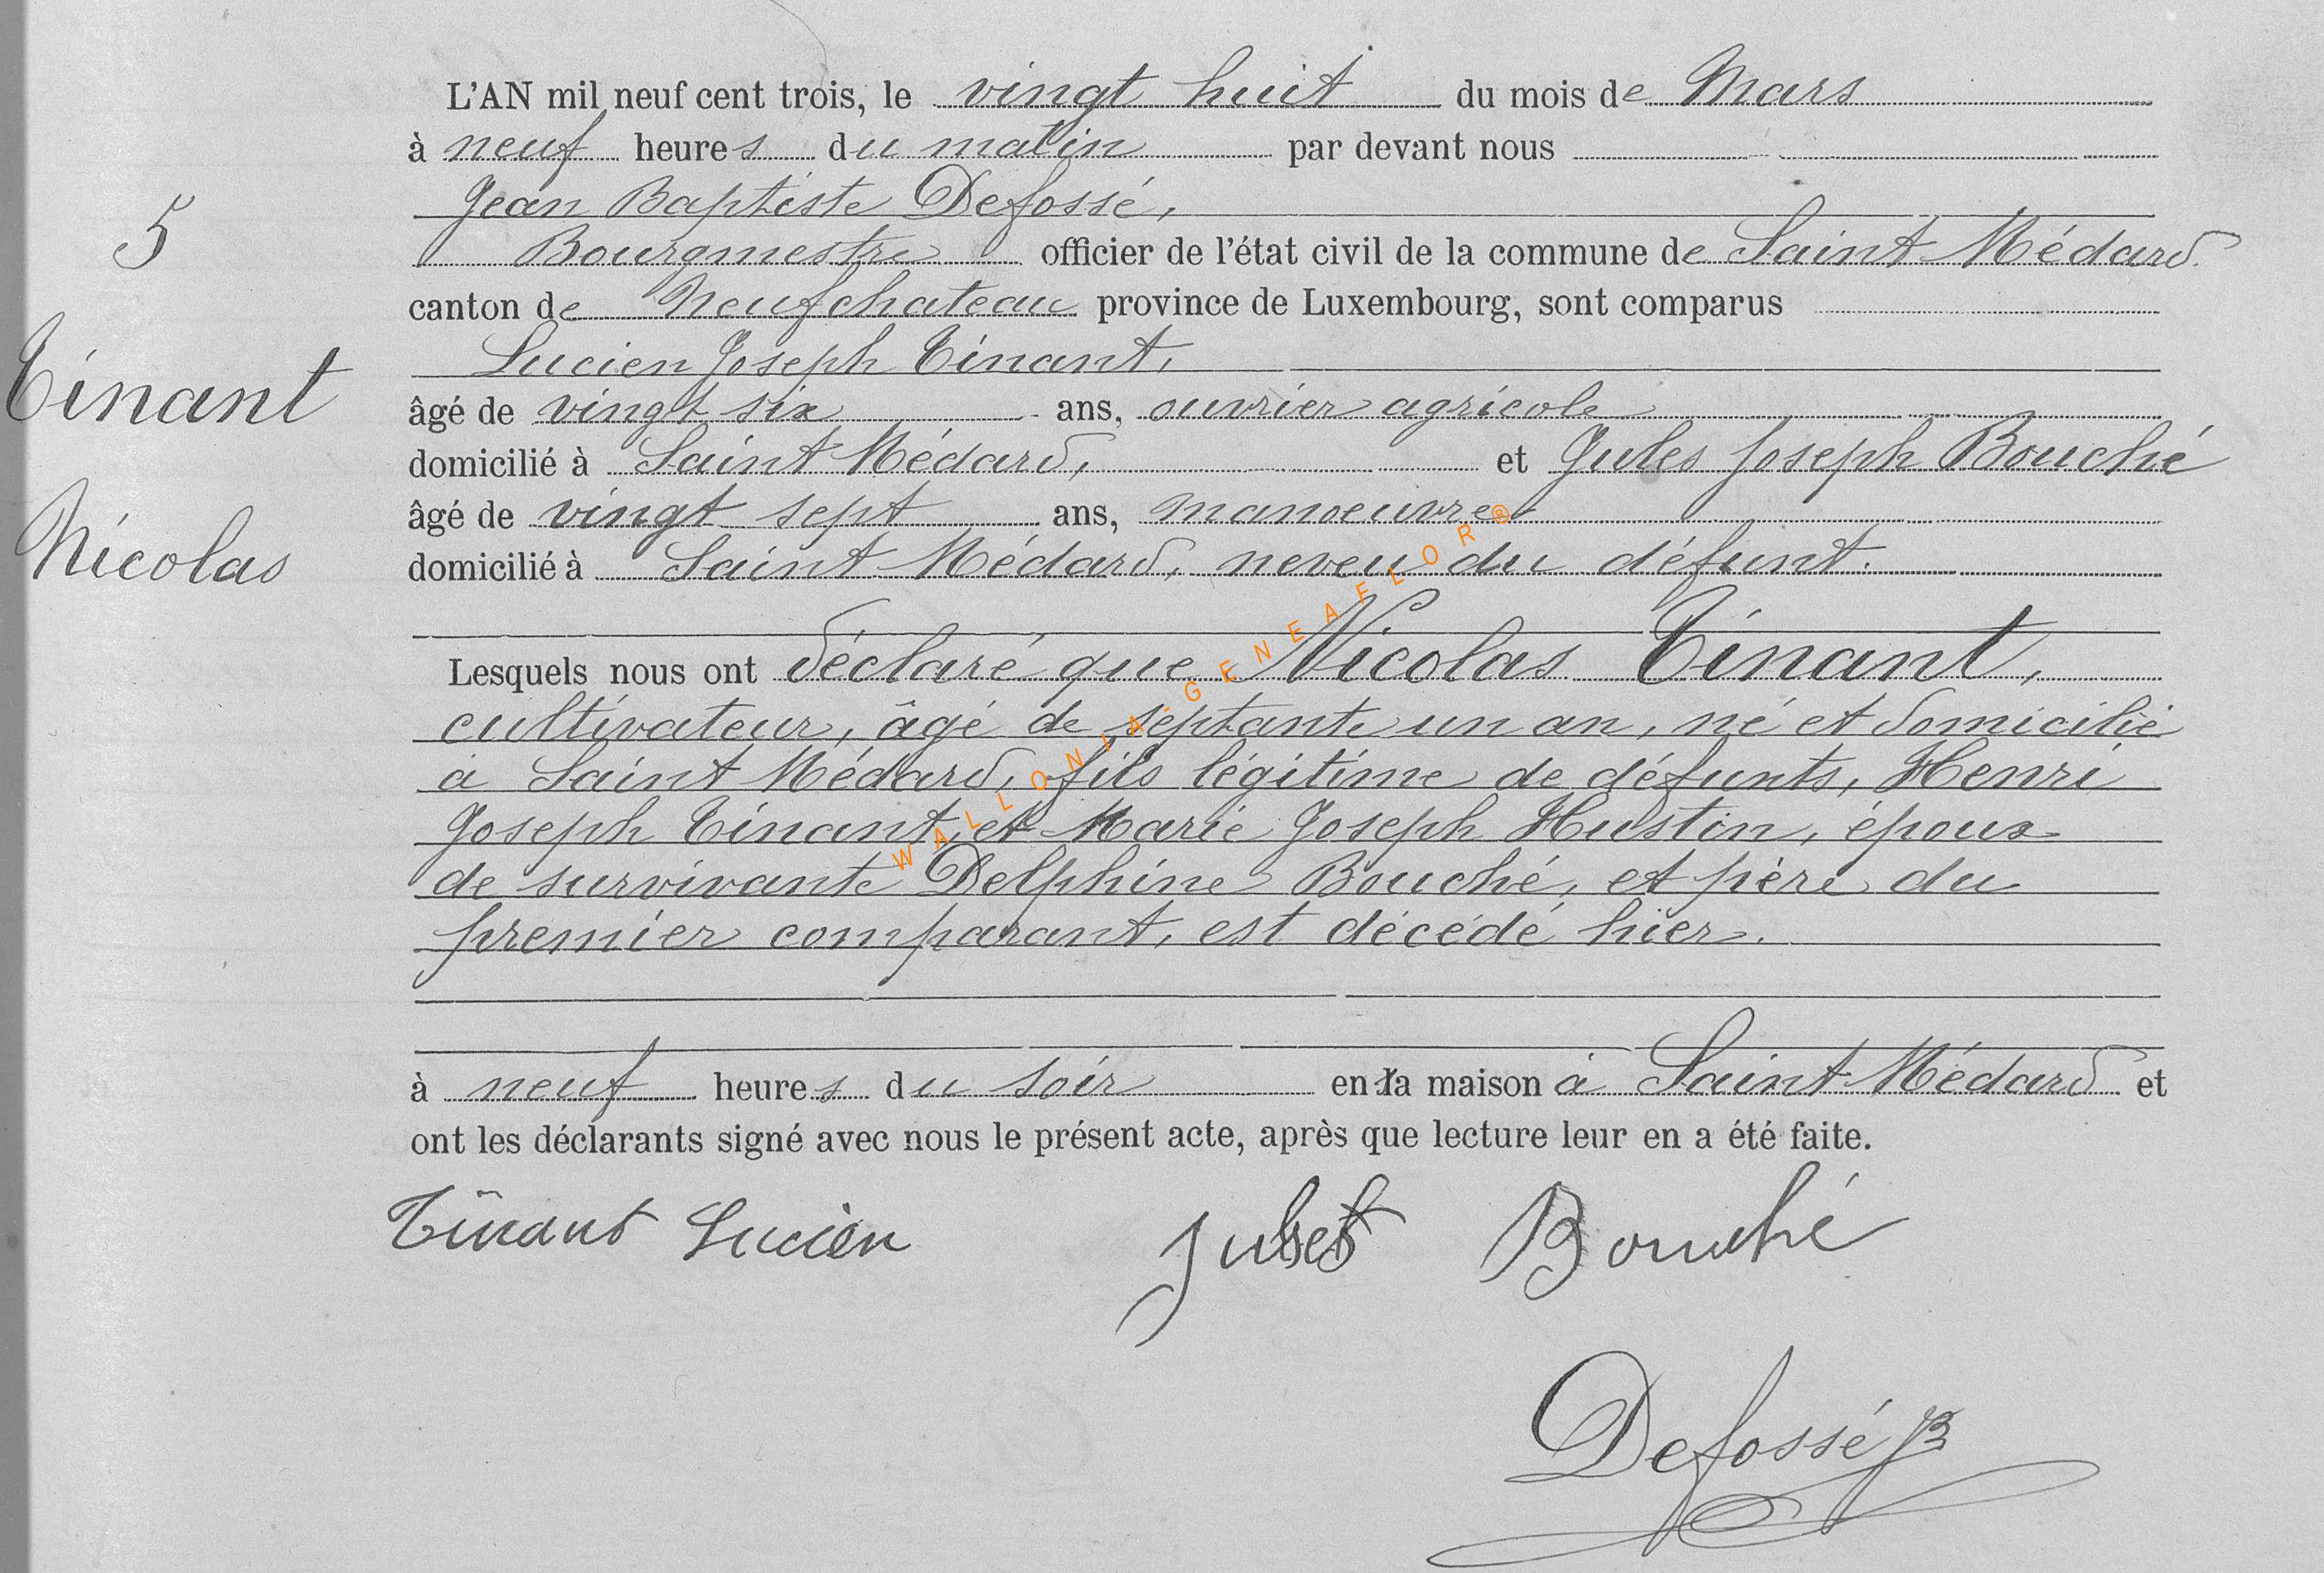 5
Tinant
Nicolas
L'AN mil neuf cent trois, le vingt huit du mois de Mars
à neuf heures du matin par devant nous
Jean Baptiste Defossé,
Bourgmestre officier de l'état civil de la commune de Saint Médard
canton de Neufchateau province de Luxembourg, sont comparus
Lucien Joseph Tinant,
âgé de vingt six ans, ouvrier agricole
domicilié à Saint Médard, et Jules Joseph Bouché
âgé de vingt sept ans, manoeuvre
domicilié à Saint Médard, neveu du défunt.
Lesquels nous ont déclaré que Nicolas Tinant,
cultivateur, âgé de septante un an, né et domicilié
à Saint Médard, fils légitime de défunts, Henri
Joseph Tinant, et Marie Joseph Hustin, époux
de survivante Delphine Bouché, et père du
premier comparant, est décédé hier.
à neuf heures du soir en sa maison à Saint Médard et
ont les déclarants signé avec nous le présent acte, après que lecture leur en a été faite.
Tinant Lucien Jules Bouché
Defossé JB
WALLONIA-GENEAFLOR®